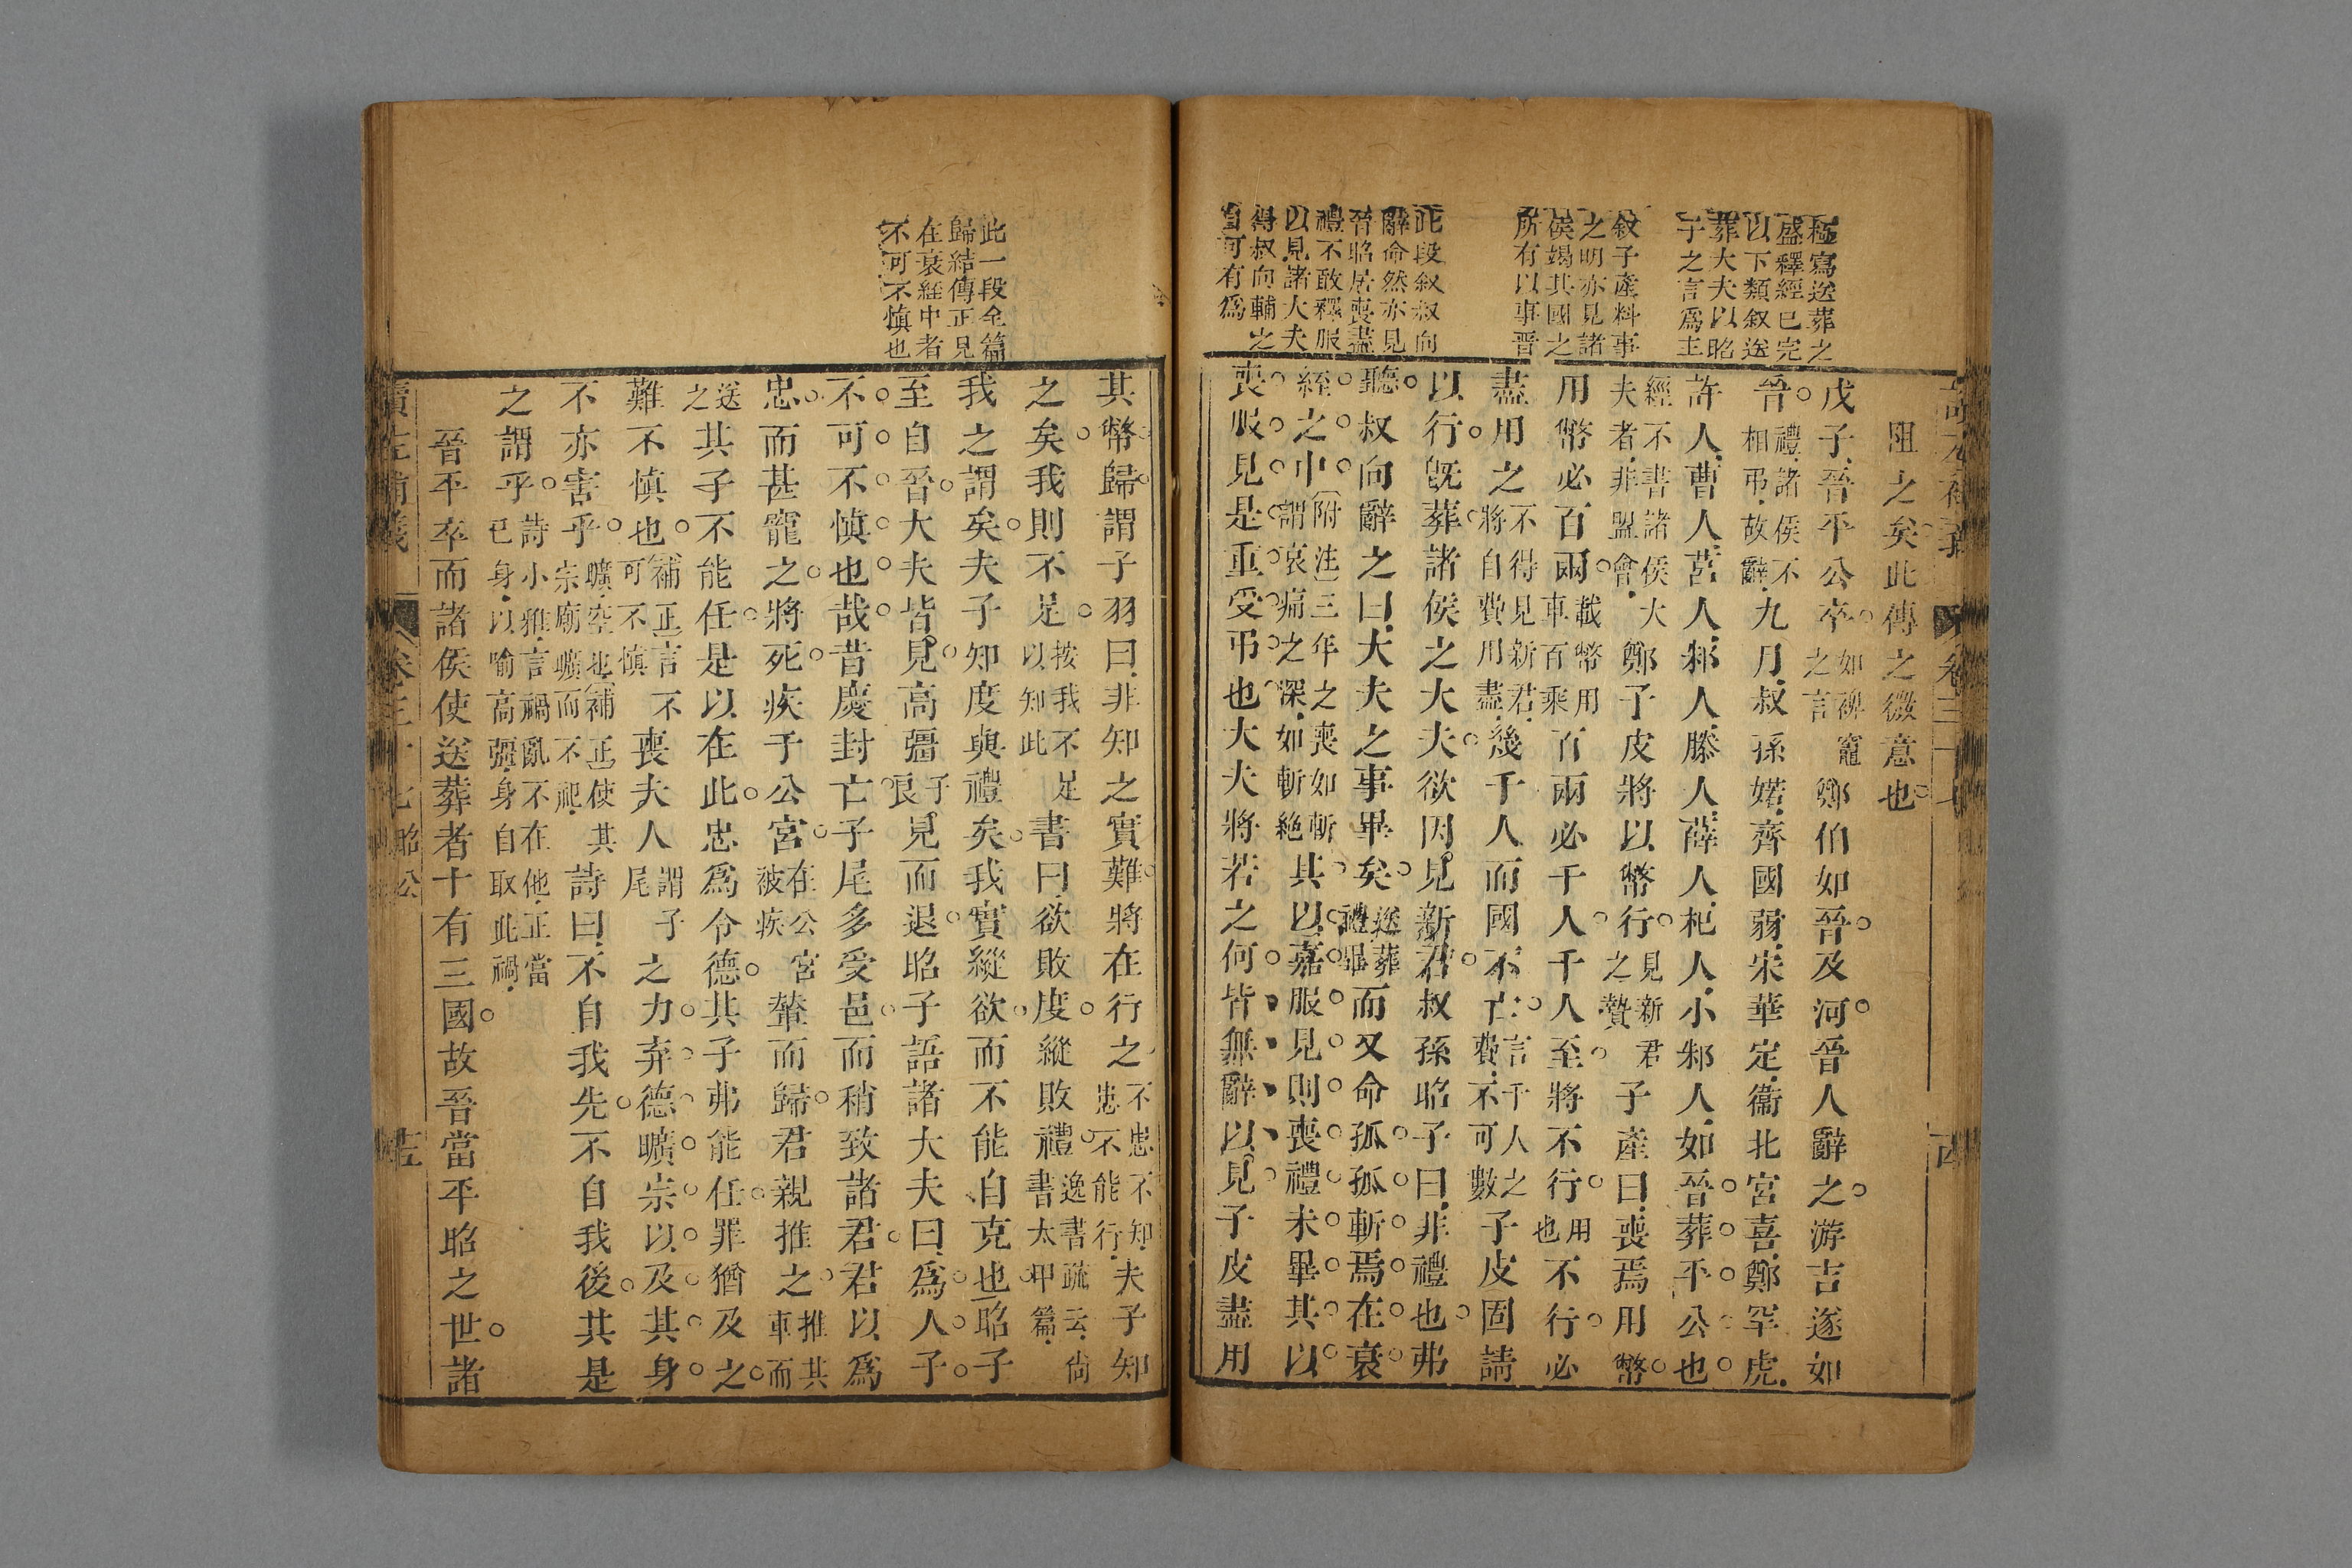 極寫送葬之
盛釋經已完
以下類叙送
葬大夫以昭
子之言爲主
叙子產料事
之明亦見諸
侯竭其國之
所有以事晉
此段叙叔向
辭命然亦見
晉昭居喪盡
禮不敢釋服
以見諸大夫
得叔向輔之
自可有爲
阻之矣此傳之微意也
戊子晉平公卒如裨竈之言鄭伯如晉及河晉人辭之游吉遂如
晉禮諸侯不相弔故辭九月叔孫婼齊國弱宋華定衞北宮喜鄭罕虎
許人曹人莒人邾人滕人薛人杞人小邾人如晉葬平公也
經不書諸侯大夫者非盟會鄭子皮將以幣行見新君之贄子產曰喪焉用幣
用幣必百兩載幣用車百乘百兩必千人千人至將不行用也不行必
盡用之不得見新君將自費用盡幾千人而國不亡言千人之費不可數子皮固請
以行旣葬諸侯之大夫欲因見新君叔孫昭子曰非禮也弗
聽叔向辭之曰大夫之事畢矣送葬禮畢而又命孤孤斬焉在衰
絰之中附注三年之喪如斬謂哀痛之深如斬絕其以嘉服見則喪禮未畢其以
喪服見是重受弔也大夫將若之何皆無辭以見子皮盡用
此一段全篇
歸結傳正見
在衰絰中者
不可不愼也
其幣歸謂子羽曰非知之實難將在行之不患不知患不能行夫子知
之矣我則不足按我不足以知此書曰欲敗度縱敗禮逸書疏云尙書太甲篇
我之謂矣夫子知度與禮矣我實縱欲而不能自克也昭子
至自晉大夫皆見高彊子良見而退昭子語諸大夫曰爲人子
不可不愼也哉昔慶封亡子尾多受邑而稍致諸君君以爲
忠而甚寵之將死疾于公宮在公宮被疾輦而歸君親推之推其車而
送之其子不能任是以在此忠爲令德其子弗能任罪猶及之
難不愼也補正言不可不愼喪夫人謂子尾之力弃德曠宗以及其身
不亦害乎曠空也補正使其宗廟曠而不祀詩曰不自我先不自我後其是
之謂乎詩小雅言禍亂不在他正當已身以喻高彊身自取此禍
晉平卒而諸侯使送葬者十有三國故晉當平昭之世諸
讀左補義 卷三十七 昭公